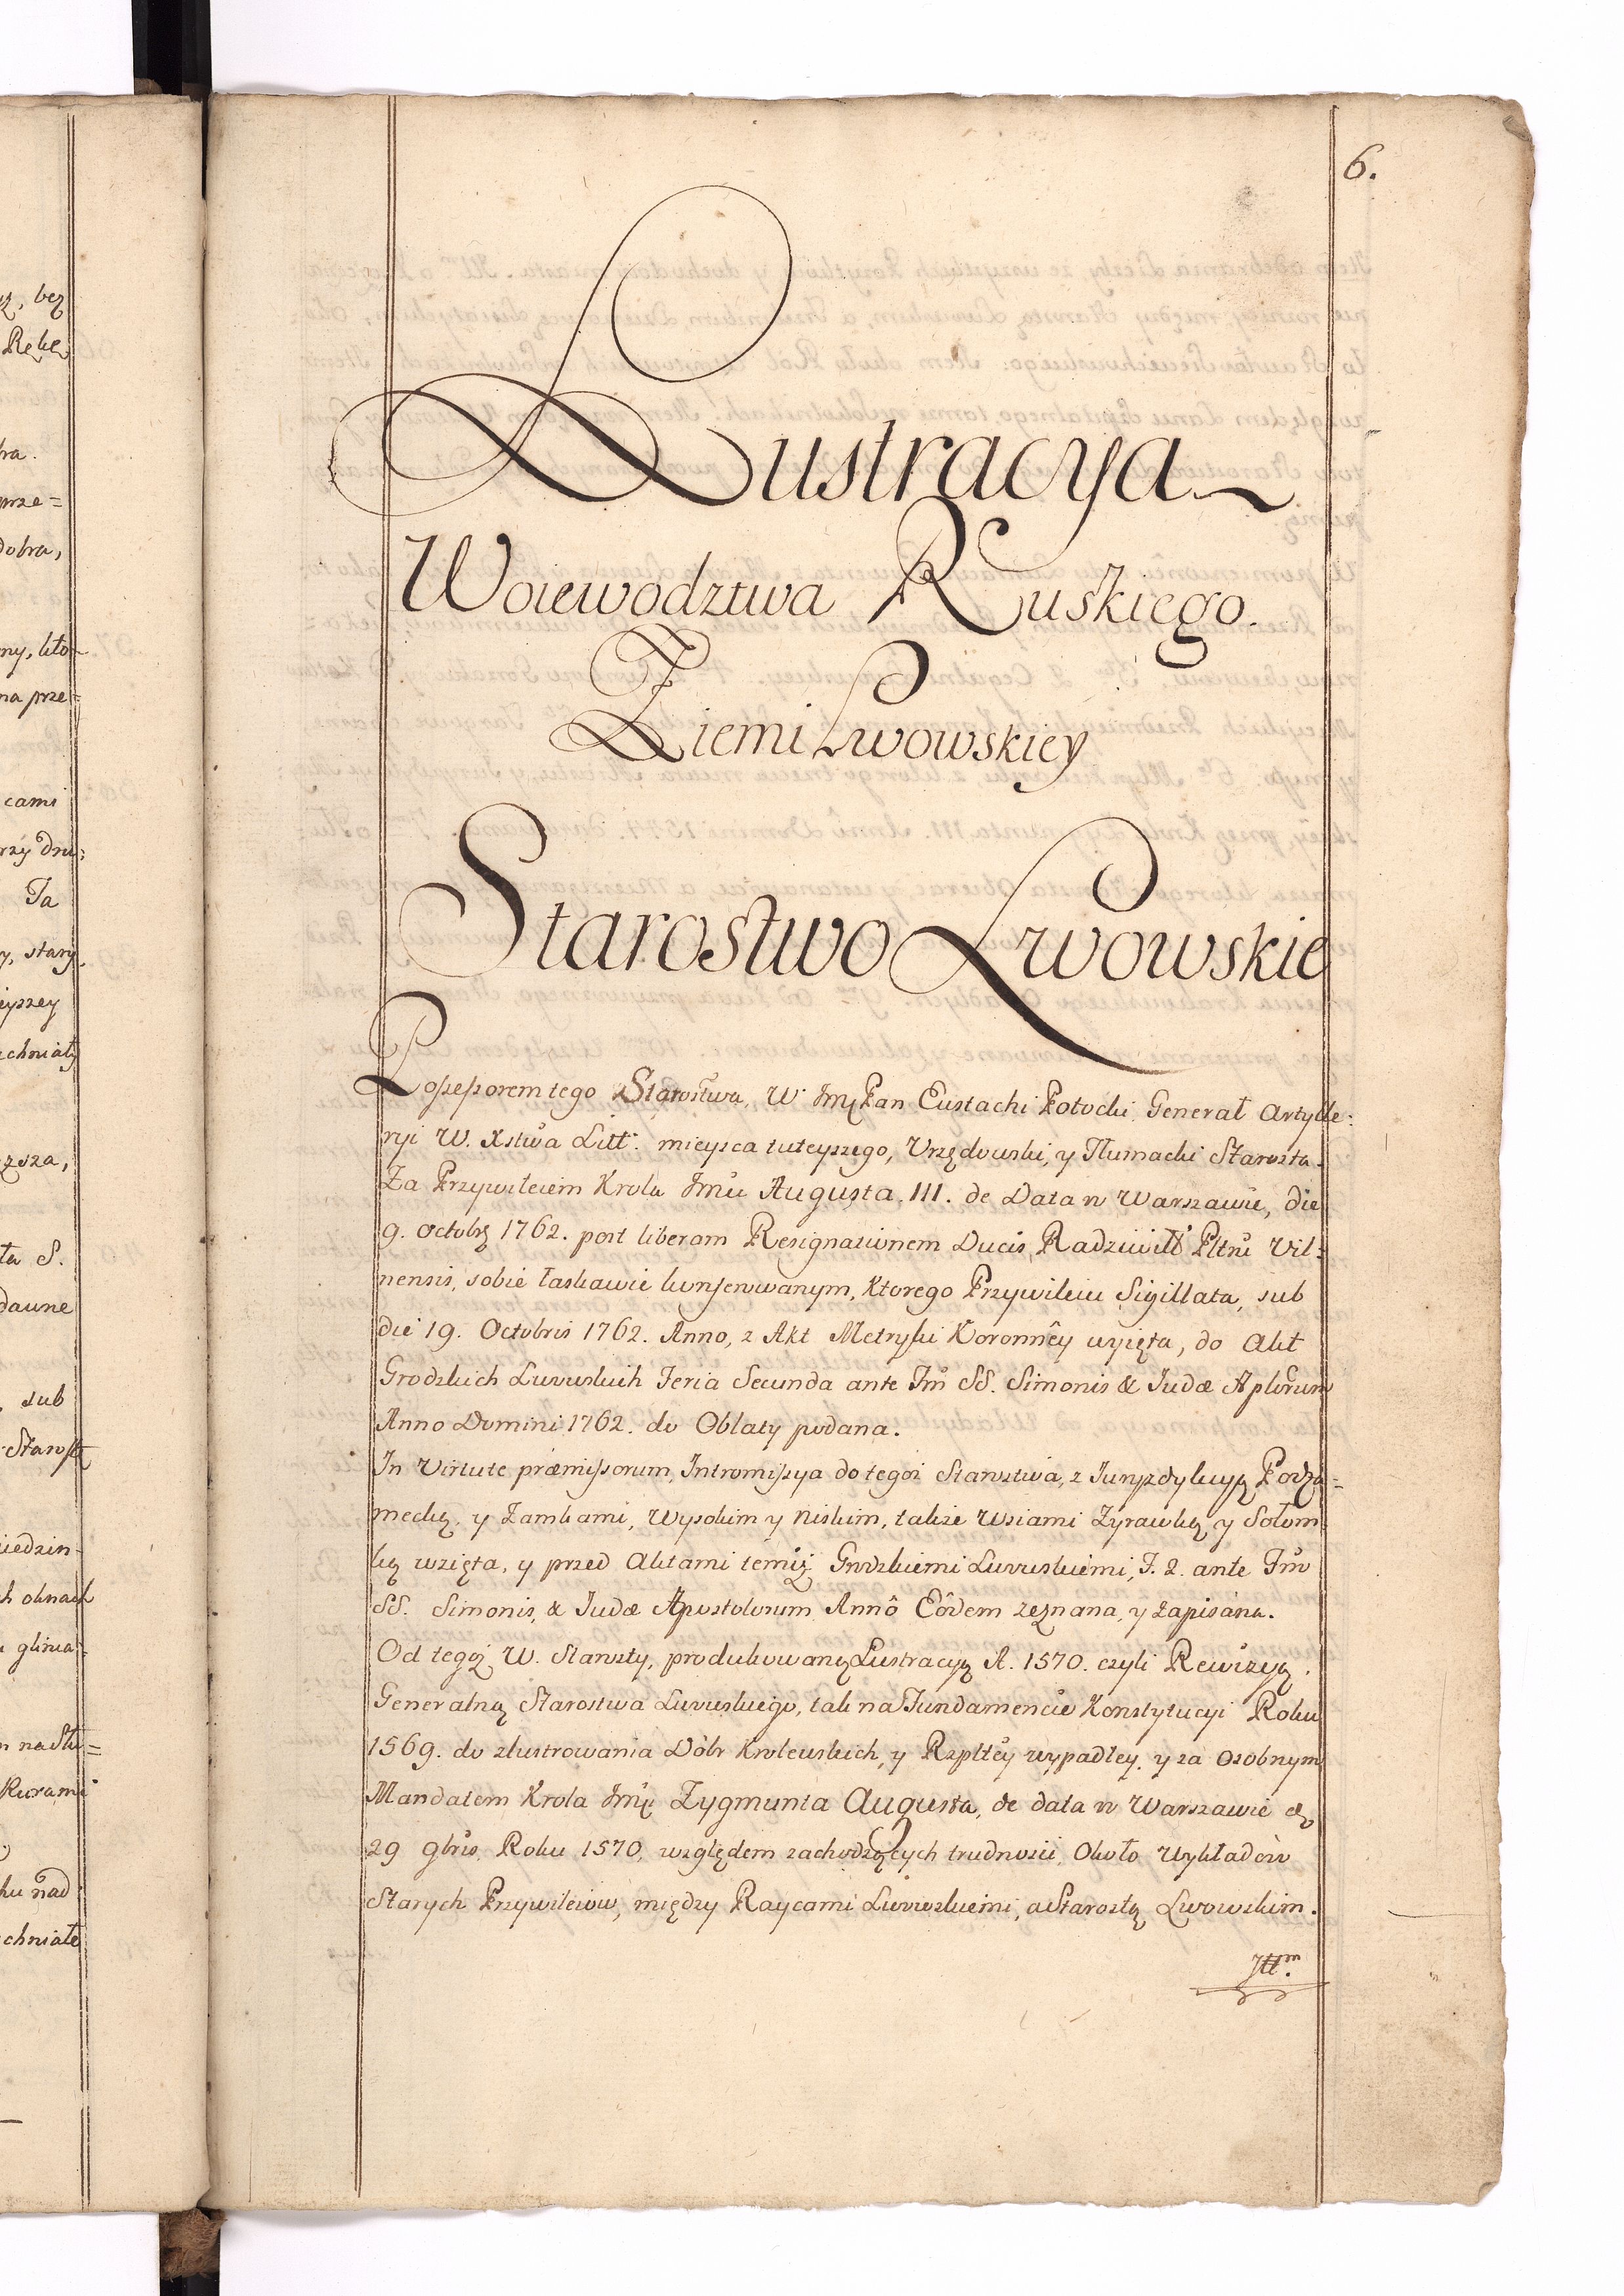 ę, bez
Rękę,
bra.
prze=
dobra,
ny, kto-
na prze=
cami
rzy dru:
Ta
y, stary,
ieyszey
chniały
zsza,
ta S.
dawne
, sub
Starosty
iedzin-
h oknach
glinia-
n na Słu=
Rurami
hu nad
chniałe
6.
Lustracya
Woiewodztwa Ruskiego.
Ziemi Lwowskiey
Starostwo Lwowskie
Possessorem tego Starostwa, W Jmć Pan Eustachi Potocki Generał Artylle:
ryi W. Xstwa Litt: mieysca tuteyszego, Urzędowski, y Tłumacki Starosta.
Za Przywileiem Krola Jmći Augusta III. de Data w Warszawie, die
9. Octobrs 1762. post liberam Resignationem Ducis Radziwiłł Pttni Vil=
nensis, sobie łaskawie konferowanym, Ktorego Przywileiu Sigillata, sub
die 19. Octobris 1762. Anno, z Akt Metryki Koronnêy wyięta, do Akt
Grodzkich Lwowskich Feria Secunda ante Fm SS. Simonis & Judæ Aplorum
Anno Domini 1762. do Oblaty podana.
In Virtute præmissorum, Intromissya do tegoż Starostwa, z Juryzdykcyą Podza=
mecką, y Zamkami, Wysokim y niskim, także Wsiami Zyrawką y Sołom-
ką wzięta, y przed Aktami temiż Grodzkiemi Lwowskiemi, F. 2. ante Fm
SS. Simonis, & Judæ Apostolorum Annô Eôdem zeznana, y zapisana.
Od tegoż W. Starosty, produkowaną Lustracyą A. 1570. czyli Rewizyą
Generalną Starostwa Lwowskiego, tak na Fundamencie Konstytucyi Roku
1569. do zlustrowania Dóbr Krolewskich, y Rzpltey wypadłey, y za osobnym
Mandatem Krola Jmći Zygmunta Augusta, de data w Warszawie d.
29 9bris Roku 1570. względem zachodzących trudności, Około Wykładów
Starych Przywileiow, między Raycami Lwowskiemi, a Starostą Lwowskim.
Ittm.